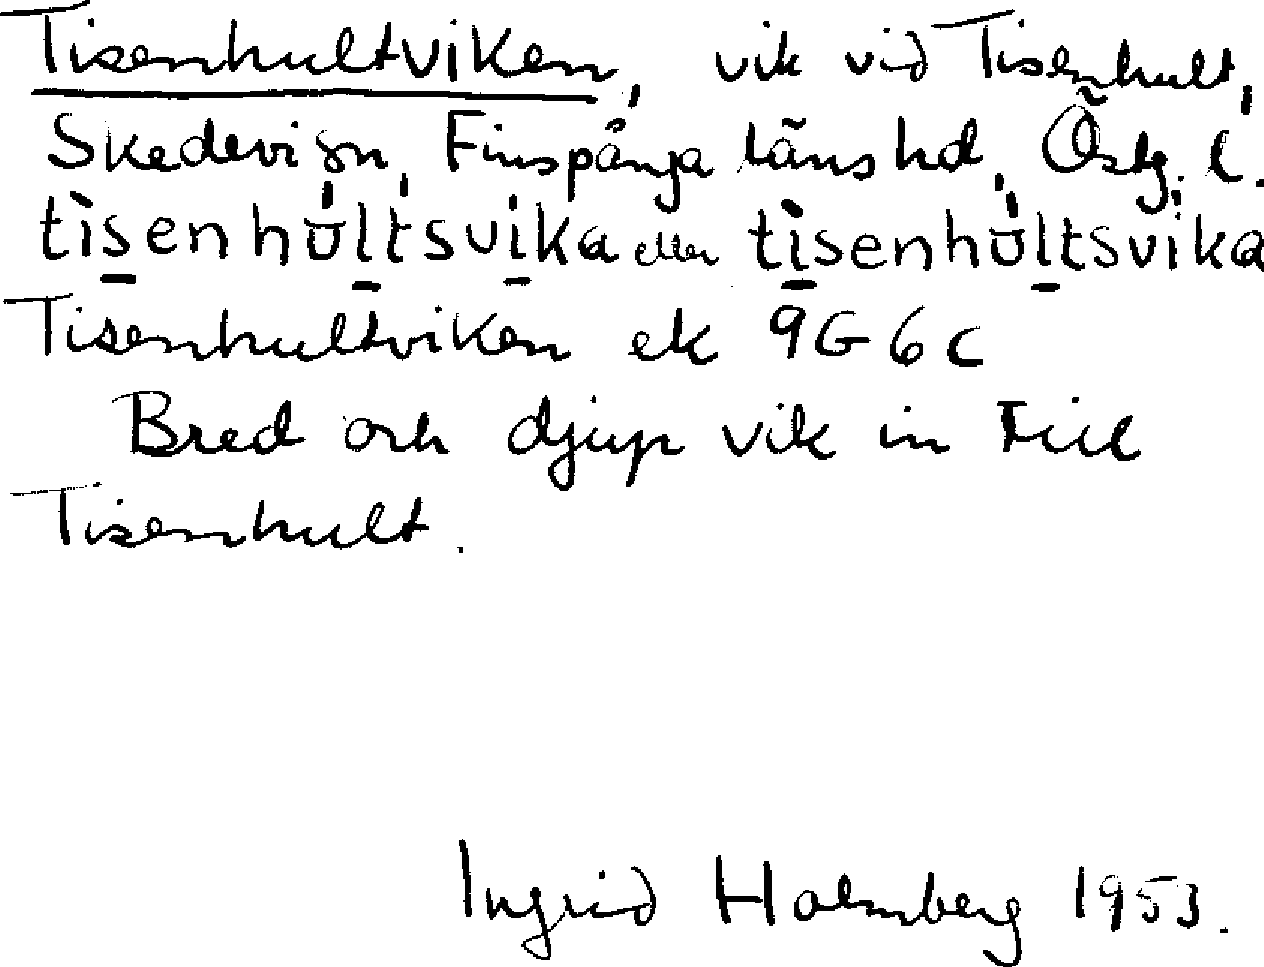 Tisenhultviken, vik vid Tisenhult,
Skedevi sn, Finspånga läns hd, Östg. l.
tìsenhúltsvika eller tìsenhúltsvika
Tisenhultviken ek 9G 6c
Bred och djup vik in till
Tisenhult.
Ingrid Holmberg 1953.